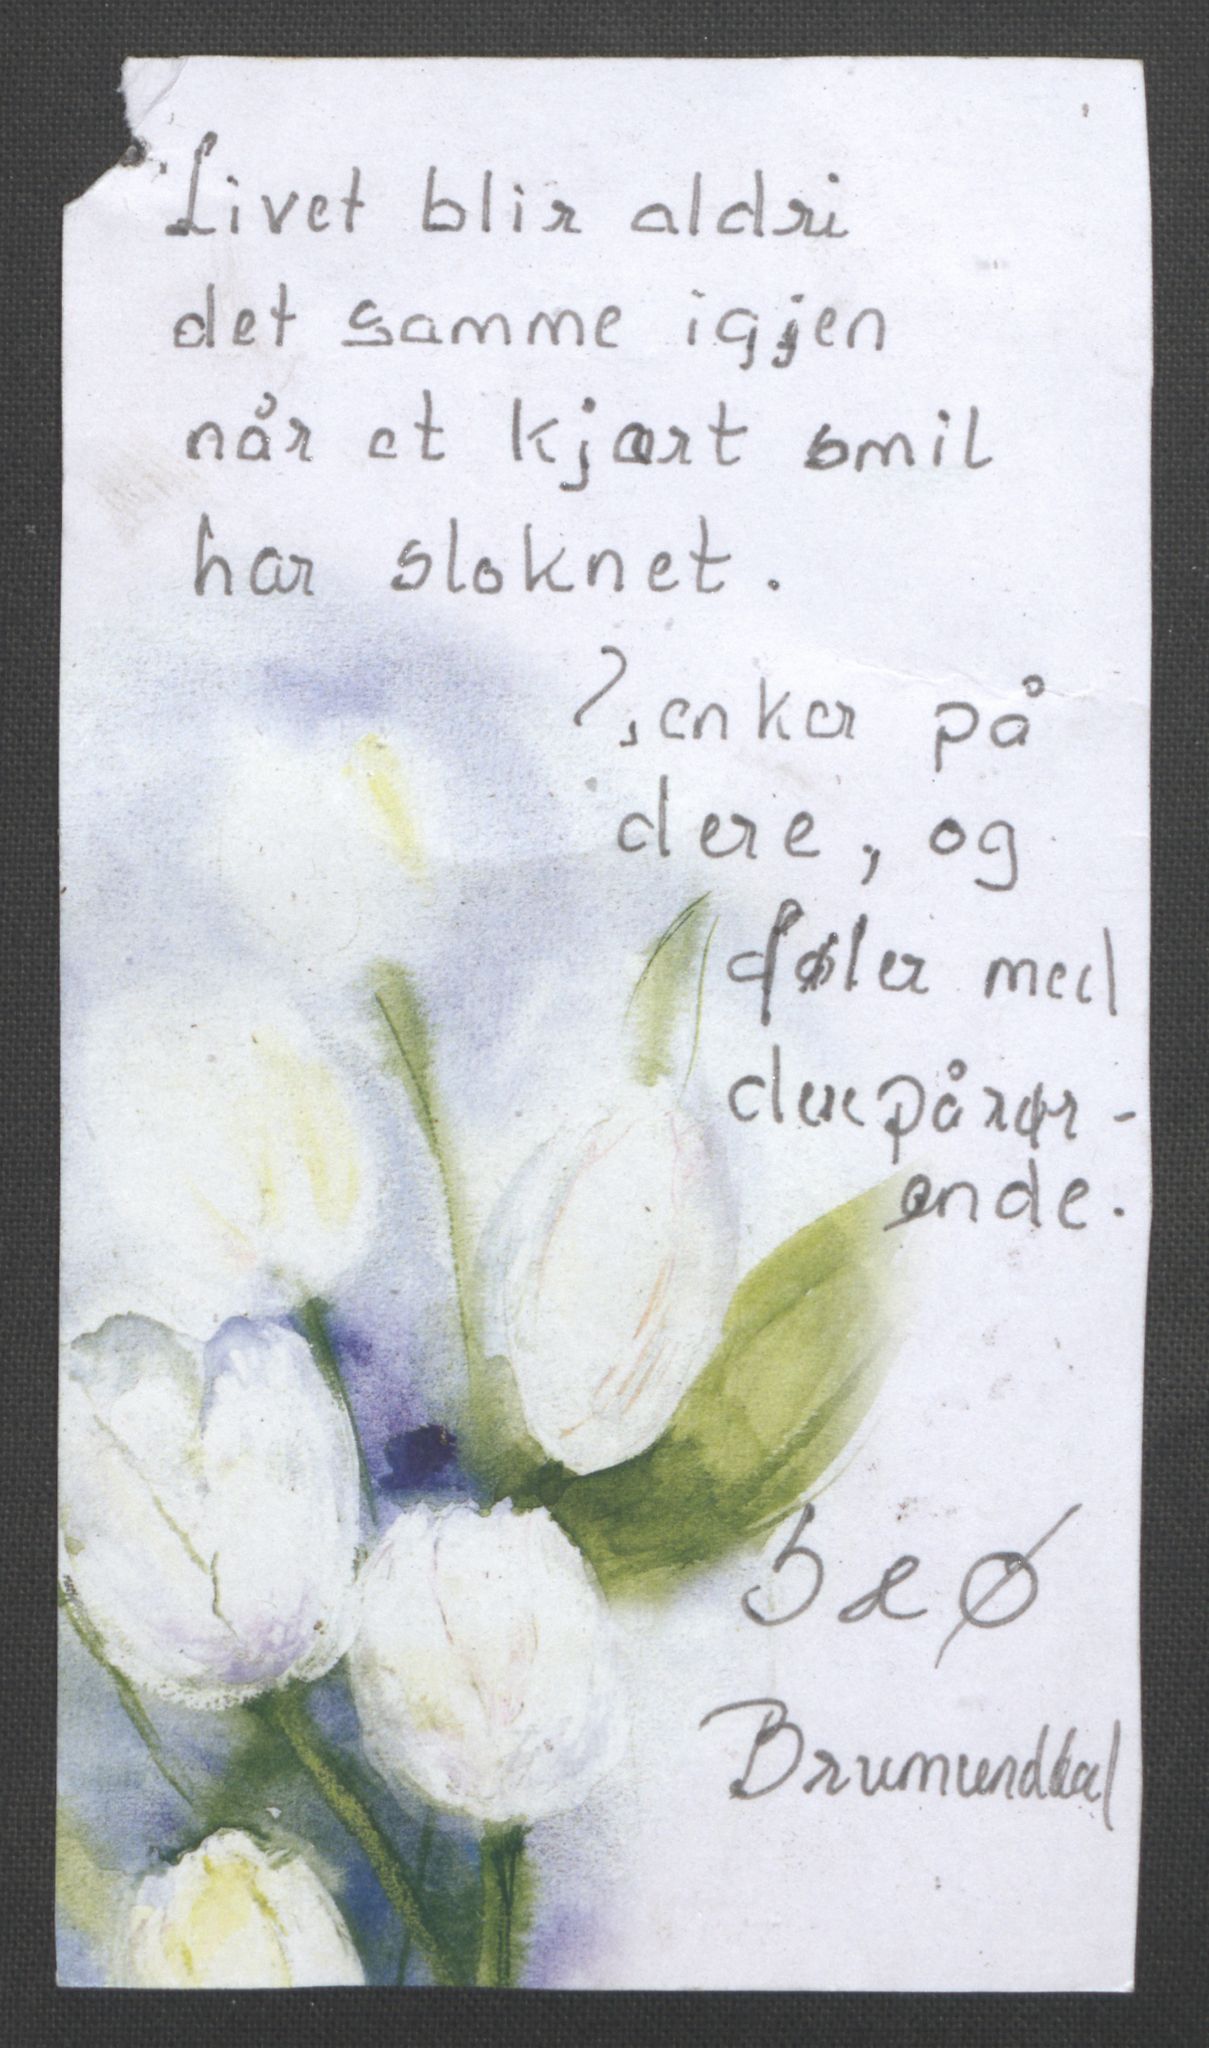 Livet blir aldri
det samme igjen
når et kjært smil
har sloknet.
Tenker på
dere, og
føler med
dere pårør-
ende.
Brumunddal